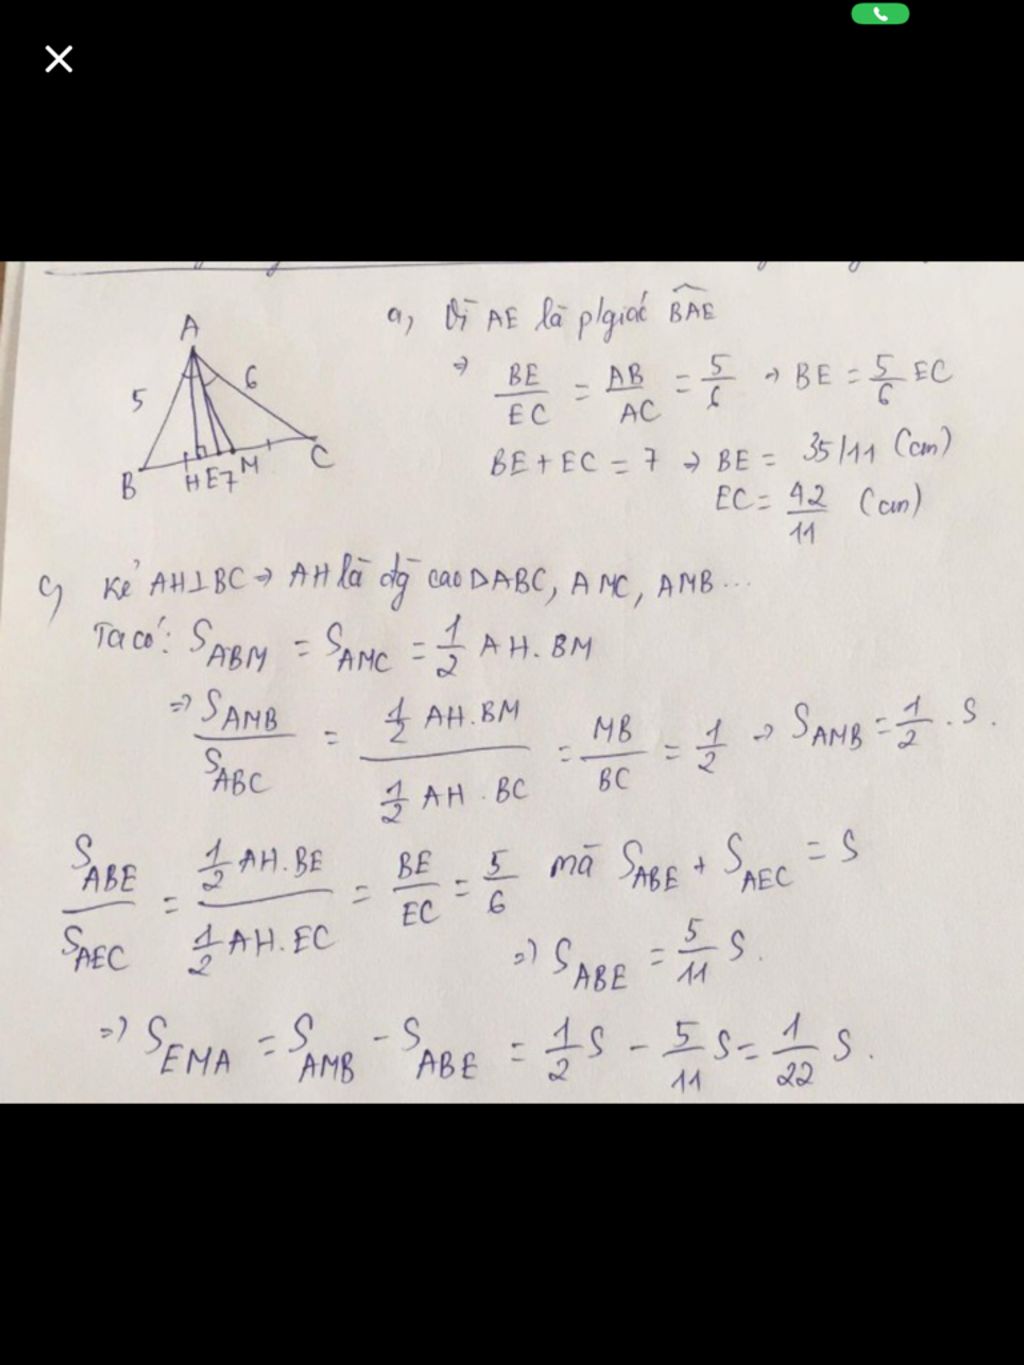 A
5
6
B
H E 7 M
C
a, Vì AE là p/giác \widehat{BAE}
⇒ \frac{BE}{EC} = \frac{AB}{AC} = \frac{5}{6} → BE = \frac{5}{6} EC
BE + EC = 7 → BE = 35/11 (cm)
EC = \frac{42}{11} (cm)
c, Kẻ AH⊥BC → AH là đg cao ΔABC, AMC, AMB...
Ta có: S_{ABM} = S_{AMC} = \frac{1}{2} AH. BM
⇒ \frac{S_{AMB}}{S_{ABC}} = \frac{\frac{1}{2} AH.BM}{\frac{1}{2} AH . BC} = \frac{MB}{BC} = \frac{1}{2} → S_{AMB} = \frac{1}{2} . S.
\frac{S_{ABE}}{S_{AEC}} = \frac{\frac{1}{2} AH.BE}{\frac{1}{2} AH. EC} = \frac{BE}{EC} = \frac{5}{6} mà S_{ABE} + S_{AEC} = S
⇒ S_{ABE} = \frac{5}{11} S.
⇒ S_{EMA} = S_{AMB} - S_{ABE} = \frac{1}{2} S - \frac{5}{11} S = \frac{1}{22} S.